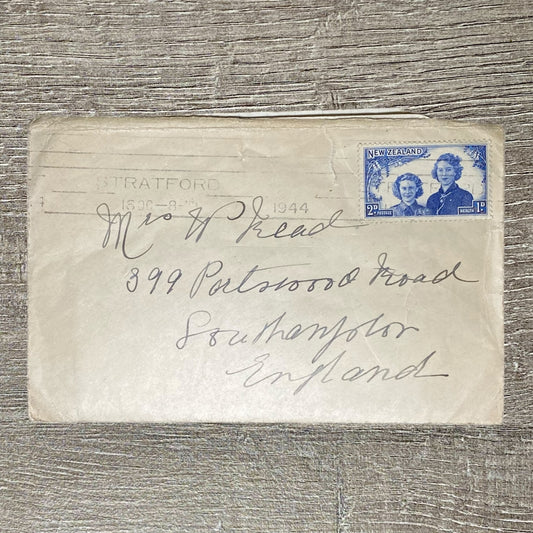 NEW ZEALAND
2D POSTAGE HEALTH 1D
STRATFORD
1944
Mrs W Read
399 Portswood Road
Southampton
England